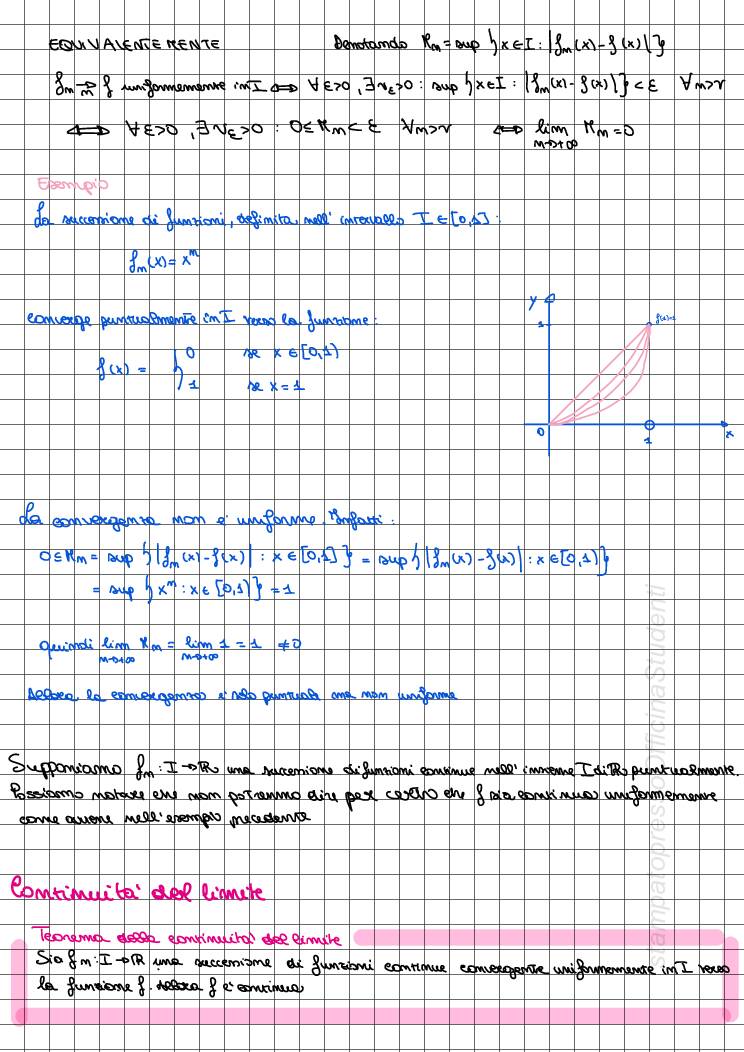 EQUIVALENTEMENTE Denotando Mₙ = sup {x∈I : |fₙ(x) - f(x)|}
fₙ →ₙ f uniformemente in I ⟺ ∀ε>0, ∃νε>0 : sup {x∈I : |fₙ(x) - f(x)|} < ε ∀n>ν
⟺ ∀ε>0, ∃νε>0 : 0 ≤ Mₙ < ε ∀n>ν ⟺ lim n→+∞ Mₙ = 0
Esempio
La successione di funzioni, definita nell' intervallo I ∈ [0,1] :
fₙ(x) = xⁿ
converge puntualmente in I verso la funzione :
f(x) = { 0 se x ∈ [0,1)
1 se x = 1
y
1
0
1
x
La convergenza non è uniforme. Infatti :
0 ≤ Mₙ = sup {|fₙ(x) - f(x)| : x ∈ [0,1]} = sup {|fₙ(x) - f(x)| : x ∈ [0,1)}
= sup {xⁿ : x ∈ [0,1)} = 1
quindi lim n→+∞ Mₙ = lim n→+∞ 1 = 1 ≠ 0
Allora la convergenza è solo puntuale ma non uniforme
Supponiamo fₙ : I → ℝ una successione di funzioni continue nell' insieme I di ℝ puntualmente.
Possiamo notare che non potremmo dire per certo che f sia continua uniformemente
come avviene nell' esempio precedente
Continuità del limite
Teorema della continuità del limite
Sia fₙ : I → ℝ una successione di funzioni continue convergente uniformemente in I verso
la funzione f. Allora f è continua
stampatopressoOfficinaStudenti